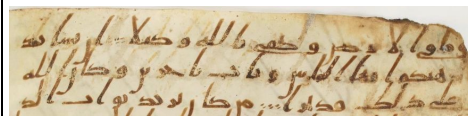 وما فى الارض وكفى بالله وكيلا ان يشا يذ
هبكم ايها الناس ويات باخرين وكان الله
على ذلك قديرا من كان يريد ثواب الد